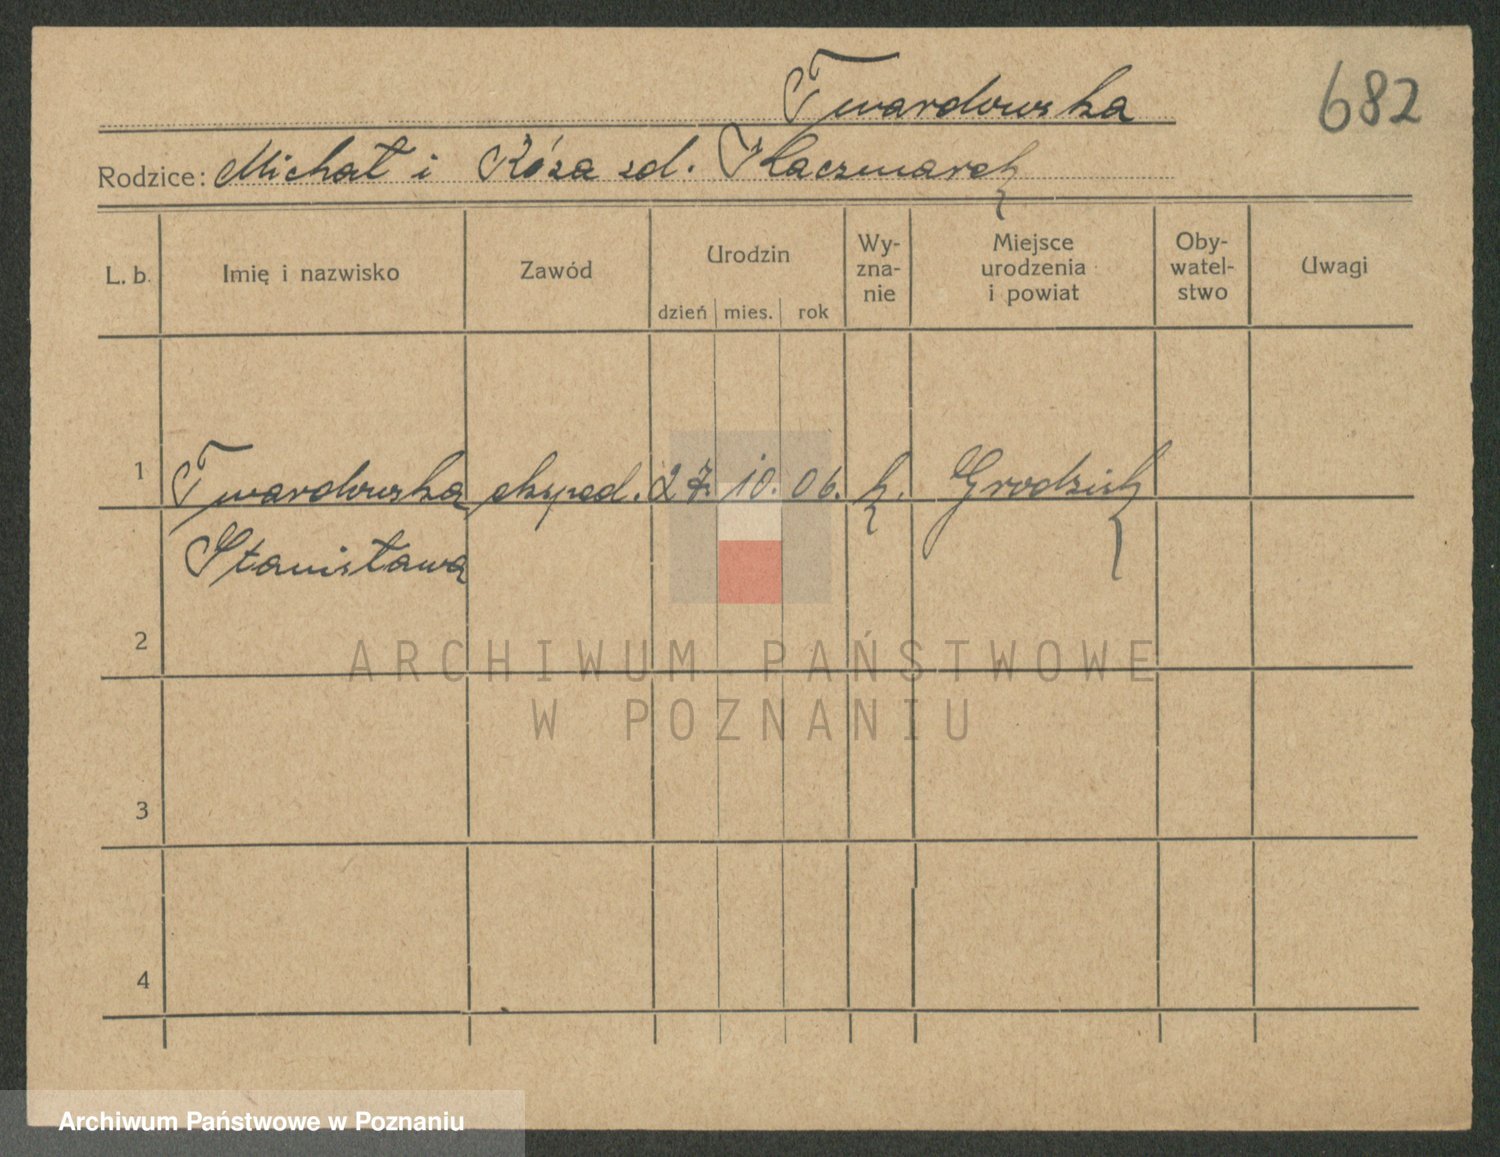 Twardowska
682
Rodzice: Michał i Róża zd. Kaczmarek
L. b. Imię i nazwisko Zawód Urodzin dzień mies. rok Wy-zna-nie Miejsce urodzenia i powiat Oby-watel-stwo Uwagi
1 Twardowska eksped. 27. 10. 06. k. Grodzisk
Stanisława
2
3
4
ARCHIWUM PAŃSTWOWE
W POZNANIU
Archiwum Państwowe w Poznaniu